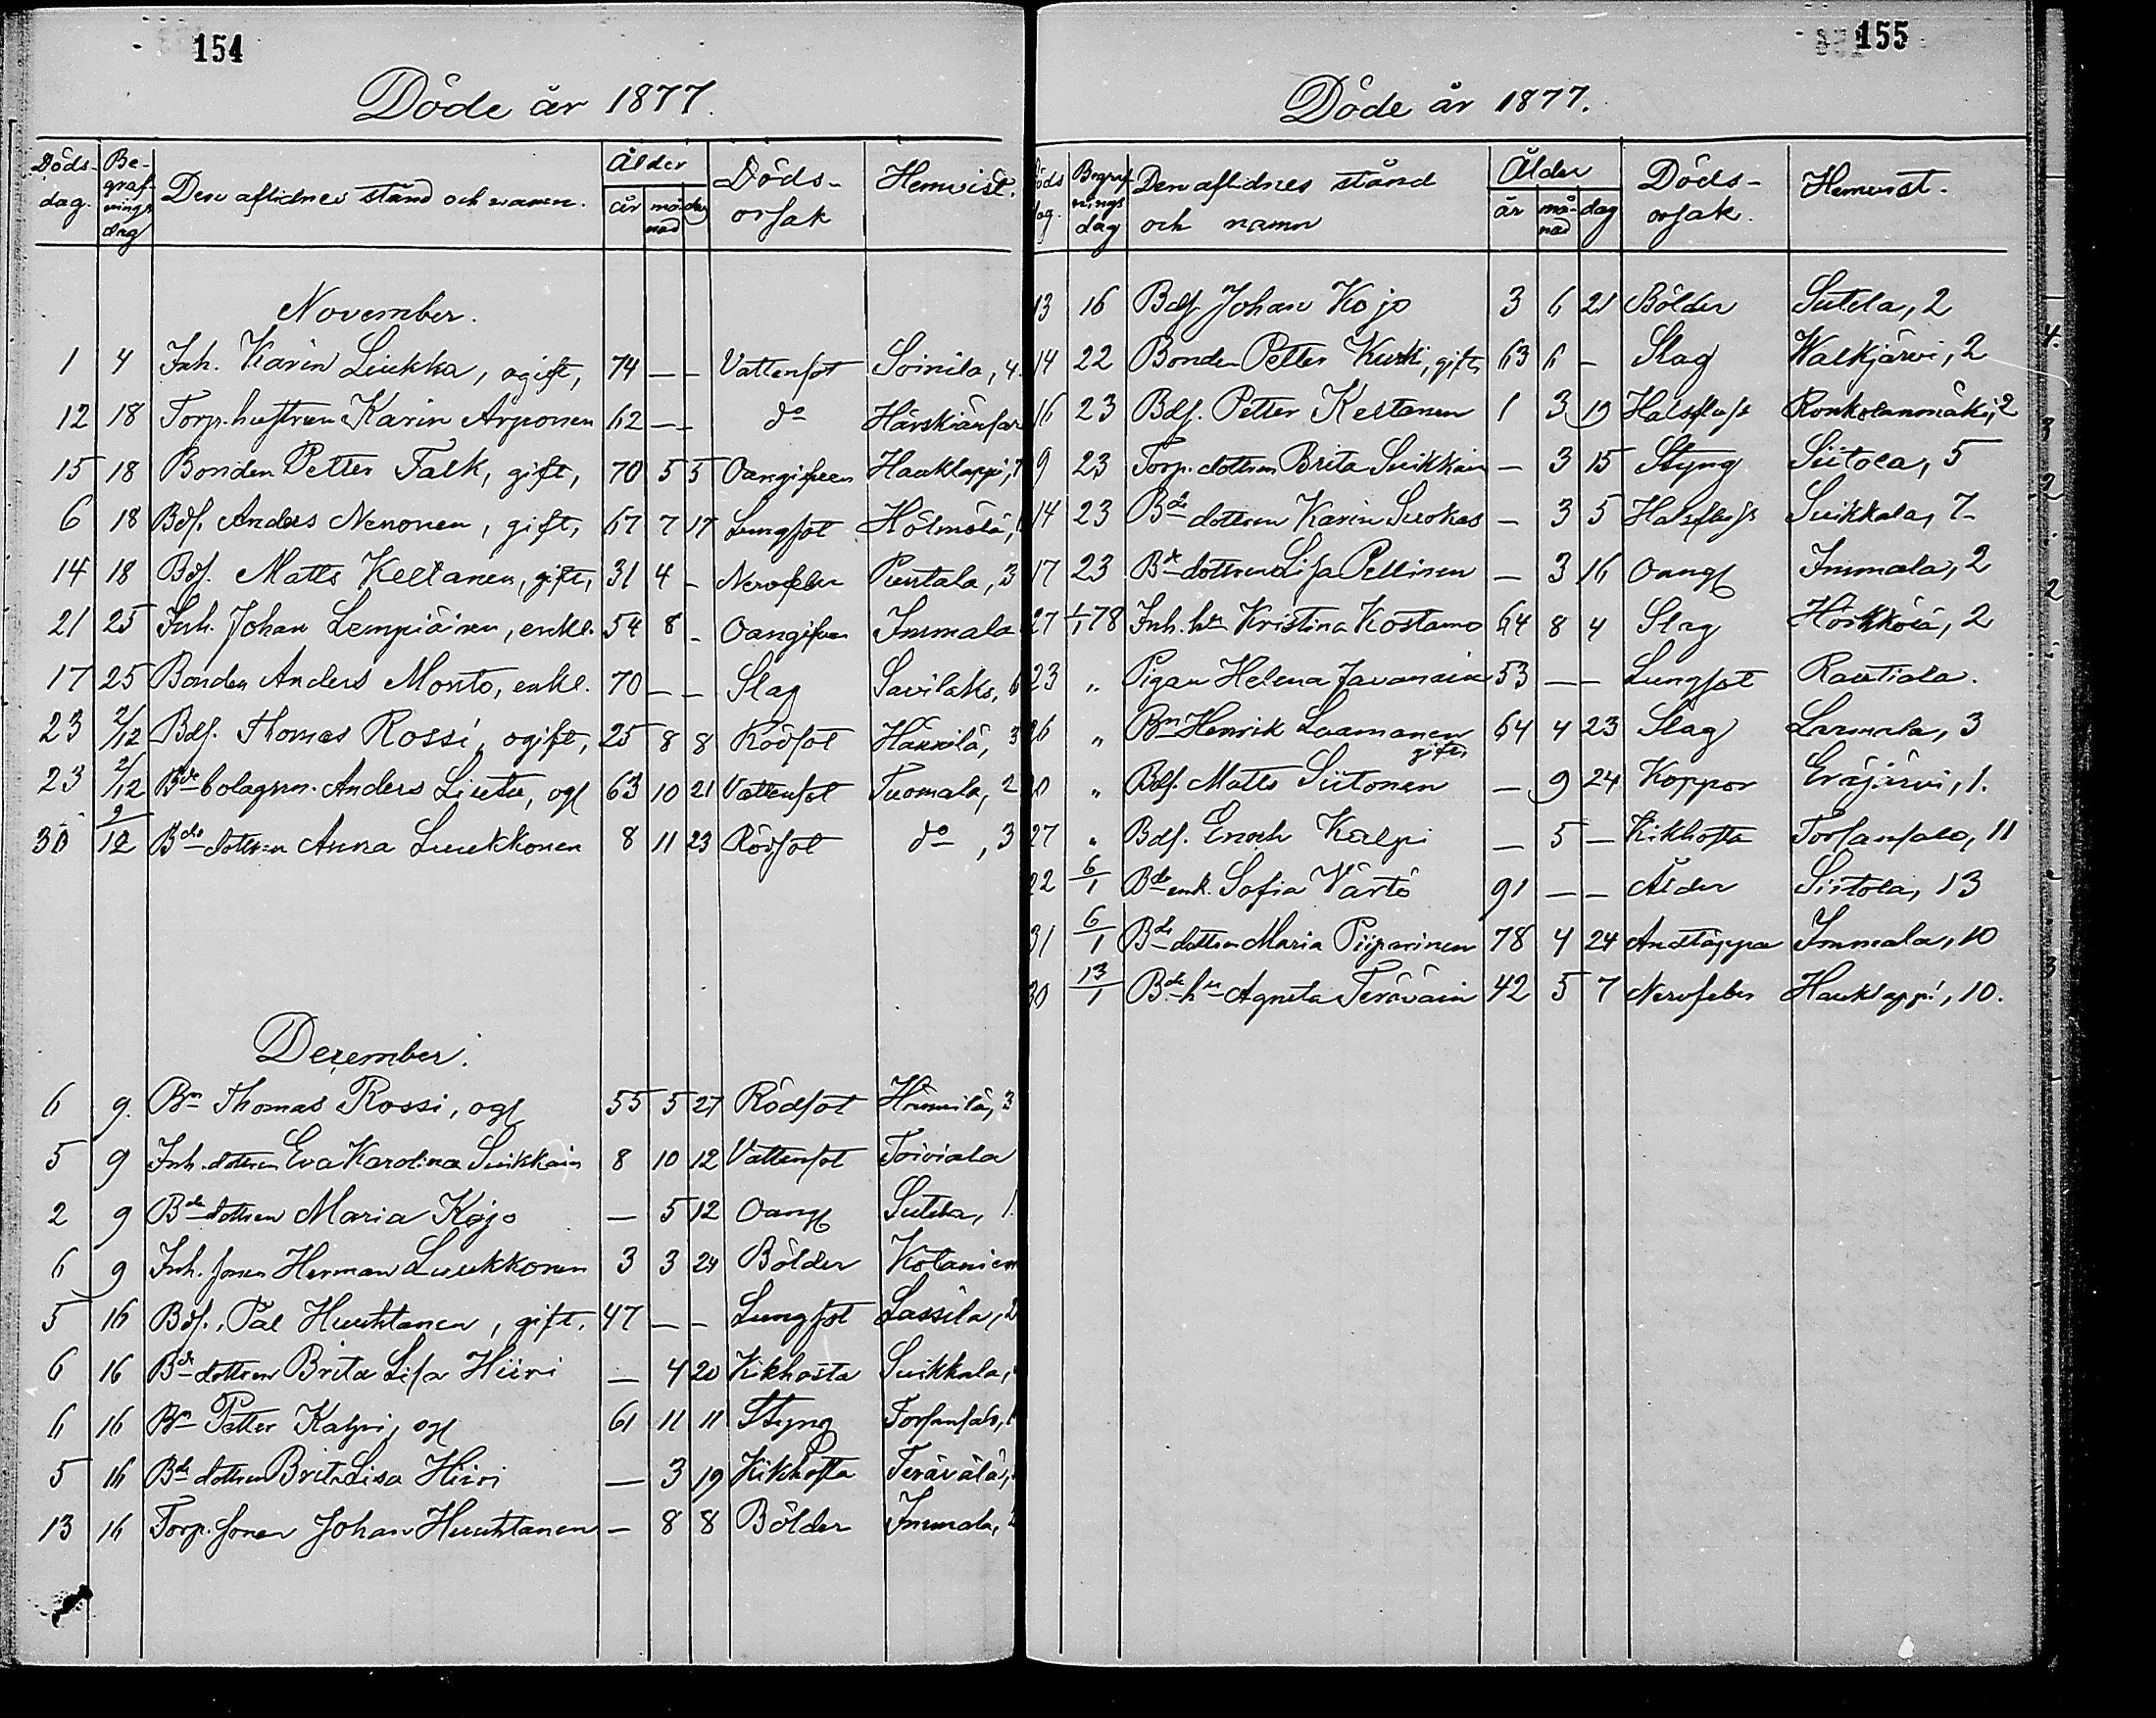 154
Döde år 1877.
Döds-dag. Begrafnings dag Den aflidnes stånd och namn. Ålder år månad dag Döds-orsak Hemvist.
November.
1 4 Inh. Karin Liukka, ogift, 74 — — Vattensot Soinila, 4.
12 18 Torp. hustrun Karin Arponen 62 — — do Härskiänsaar
15 18 Bonden Petter Falk, gift, 70 5 5 Oangifven Hauklappi,
6 18 Bdf. Anders Nenonen, gift, 67 7 17 Lungsot Hölmölä,
14 18 Bdf. Matts Keltanen, gift, 31 4 - Nervfeber Puntala, 3
21 25 Inh. Johan Lempiäinen, enkl. 54 8 - Oangifven Immala
17 25 Bonden Anders Monto, enkl. 70 — — Slag Savilaks, 6
23 2/12 Bdf. Thomas Rossi, ogift, 25 8 8 Rödsot Hännilä, 3
23 2/12 Bde bolagsm. Anders Liutu, ogf 63 10 21 Vattensot Tuomala, 2
30 9/12 Bde dottren Anna Luukkonen 8 11 23 Rödsot do, 3
December.
6 9. Bn Thomas Rossi, ogf 55 5 27 Rödsot Hännilä, 3
5 9 Inh. dottren Eva Karolina Suikkain 8 10 12 Vattensot Toiviala
2 9 Bde dottren Maria Kojo — 5 12 Oangf Sutela, 1.
6 9 Inh. sonen Herman Luukkonen 3 3 24 Bölder Kolaniem
5 16 Bdf. Pål Huuhtanen, gift. 47 — — Lungsot Lassila, 2
6 16 Bde dottren Brita Lisa Hiiri — 4 20 Kikhosta Suikkala,
6 16 Bn Petter Kalpi, ogf 61 11 11 Styng Torsansalo,
5 16 Bde dottren Brita Lisa Hiiri — 3 19 Kikhosta Terävälä,
13 16 Torp. sonen Johan Huuhtanen — 8 8 Bölder Immala,
155
Döde år 1877.
Döds dag. Begrafnings dag Den aflidnes stånd och namn Ålder år månad dag Döds-orsak. Hemvist.
13 16 Bdf Johan Kojo 3 6 21 Bölder Sutela, 2
14 22 Bonden Petter Kurki, gift, 63 6 - Slag Walkjärvi, 2
16 23 Bdf. Petter Kestanen 1 3 19 Halsfluss Ronkolanmäki, 2
9 23 Torp. dottren Brita Suikkain — 3 15 Styng Siitola, 5
14 23 Bde dottren Karin Surokas — 3 5 Halsfluss Suikkala, 7
17 23 Bde dottren Lisa Pellinen — 3 16 Oangf Immala, 2
27 1/1 78 Inh. hu Kristina Kostamo 64 8 4 Slag Höikköiä, 2
23 " Pigan Helena Javanain 53 — — Lungsot Rautiala.
26 " Bn Henrik Laamanen gift, 64 4 23 Slag Larmala, 3
20 " Bdf. Matts Siitonen — 9 24 Koppor Eräjärvi, 1.
27 " Bdf. Enoch Kalpi — 5 — Kikhosta Torsansalo, 11
22 6/1 Bde enk. Sofia Värtö 91 — — Ålder Siitola, 13
31 6/1 Bde dottren Maria Piiparinen 78 4 24 Andtäppa Immala, 10
30 13/1 Bde hu Agneta Teräväin 42 5 7 Nervfeber Hauklappi, 10.